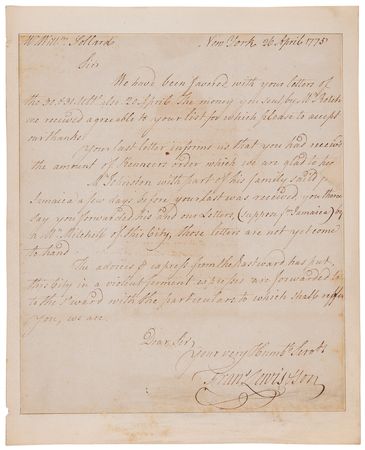 Mr. Willm Pollard New York 26 April 1775
Sir
We have been favored with your letters
of the 30 & 31 Ulto. also 20 April. The money you sent by Mr
we received agreeable to your list for which please to accept
our thanks.
Your last letter informs us that you had received
the amount of order which we are glad to
Mr Johnston with part of his family said for
Jamaica a few days before your last was received, you therein
say you forwarded his and our Letters, (suppose for Jamaica) by
a Mr Mitchell of this City, those letters are not yet come
to hand.
The advices & express from the Eastward has put
this City in a violent ferment expresses are forwarded to
to the So.ward with the particulars to which shall refer
You, we are
Dear Sir
Your very Humbl Servts
Frans Lewis & Son